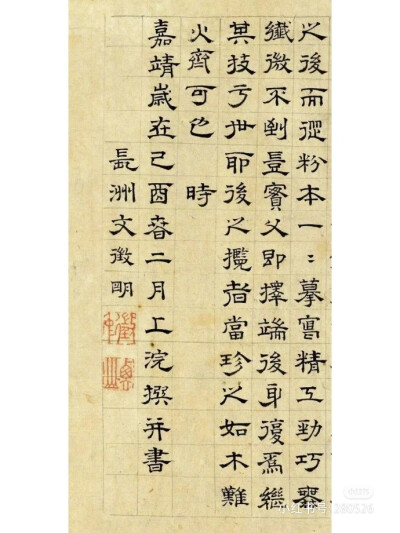 之後而從粉本一〻摹寫精工勁巧
纖微不到豈實父即擇端後身復焉繼
其技亏世耶後之攬者當珍之如木難
火齊可也 時
嘉靖歲在己酉春二月上浣撰并書
長洲文徵明
小红书
小红书号 280526